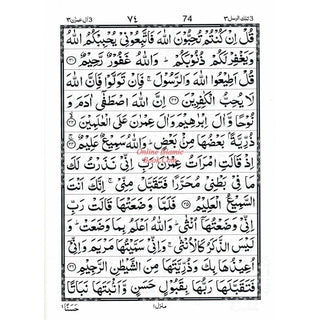 3 تلك الرسل ٣ 74 ٧٤ 3 اٰل عمرٰن ٣
قُلْ اِنْ كُنْتُمْ تُحِبُّوْنَ اللّٰهَ فَاتَّبِعُوْنِيْ يُحْبِبْكُمُ اللّٰهُ
وَيَغْفِرْ لَكُمْ ذُنُوْبَكُمْ ؕ وَاللّٰهُ غَفُوْرٌ رَّحِيْمٌ ۝
قُلْ اَطِيْعُوا اللّٰهَ وَالرَّسُوْلَ ۚ فَاِنْ تَوَلَّوْا فَاِنَّ اللّٰهَ
لَا يُحِبُّ الْكٰفِرِيْنَ ۝ اِنَّ اللّٰهَ اصْطَفٰى اٰدَمَ وَ
نُوْحًا وَّاٰلَ اِبْرٰهِيْمَ وَاٰلَ عِمْرٰنَ عَلَى الْعٰلَمِيْنَ ۝
ذُرِّيَّةًۢ بَعْضُهَا مِنْۢ بَعْضٍ ؕ وَاللّٰهُ سَمِيْعٌ عَلِيْمٌ ۝
Online Islamic
اِذْ قَالَتِ امْرَاَتُ عِمْرٰنَ رَبِّ اِنِّيْ نَذَرْتُ لَكَ
مَا فِيْ بَطْنِيْ مُحَرَّرًا فَتَقَبَّلْ مِنِّيْ ۚ اِنَّكَ اَنْتَ
السَّمِيْعُ الْعَلِيْمُ ۝ فَلَمَّا وَضَعَتْهَا قَالَتْ رَبِّ
اِنِّيْ وَضَعْتُهَاۤ اُنْثٰى ؕ وَاللّٰهُ اَعْلَمُ بِمَا وَضَعَتْ ؕ وَ
لَيْسَ الذَّكَرُ كَالْاُنْثٰى ۚ وَاِنِّيْ سَمَّيْتُهَا مَرْيَمَ وَاِنِّيْۤ
اُعِيْذُهَا بِكَ وَذُرِّيَّتَهَا مِنَ الشَّيْطٰنِ الرَّجِيْمِ ۝
فَتَقَبَّلَهَا رَبُّهَا بِقَبُوْلٍ حَسَنٍ وَّاَنْۢبَتَهَا نَبَاتًا
منزل ١